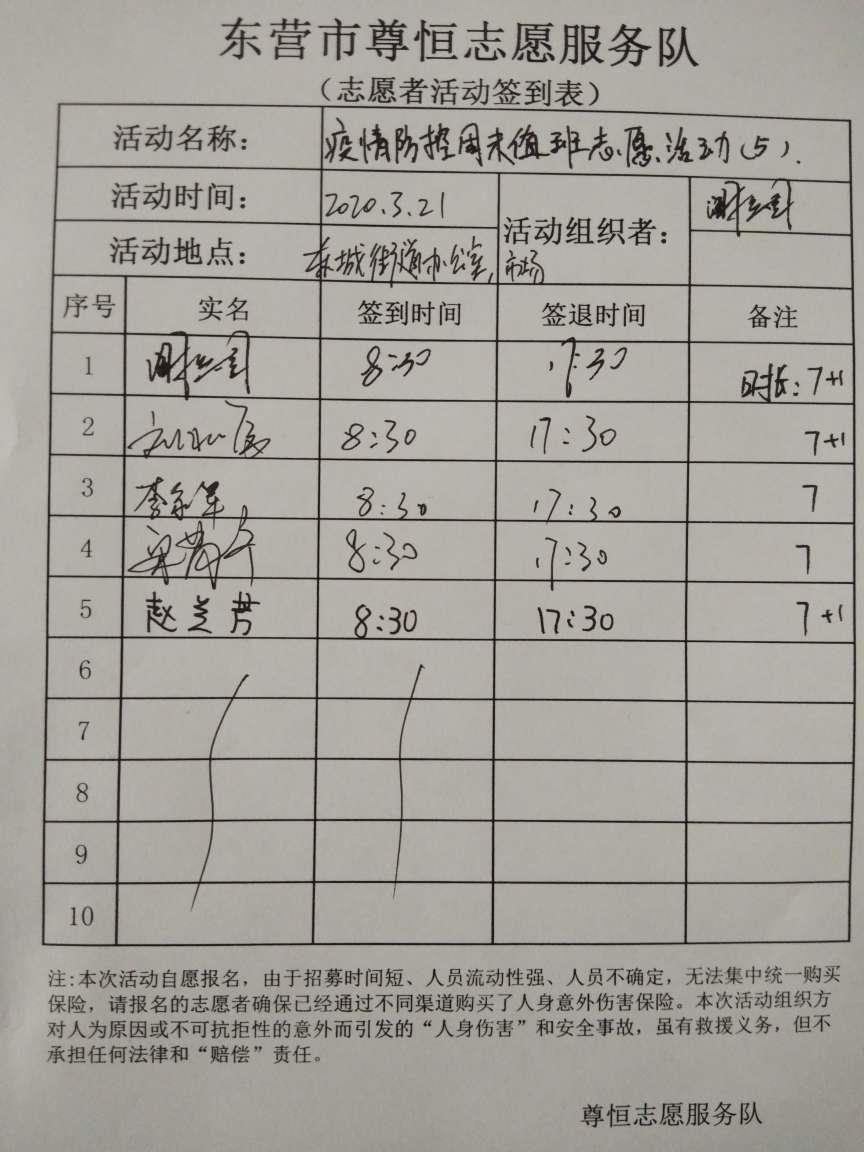 东营市尊恒志愿服务队
（志愿者活动签到表）
活动名称： 疫情防控周末值班志愿活动（5）.
活动时间： 2020.3.21
活动组织者：
活动地点： 东城街道办公室,市场
序号 实名 签到时间 签退时间 备注
1 8:30 17:30 时长：7+1
2 8:30 17:30 7+1
3 李 军 8:30 17:30 7
4 8:30 17:30 7
5 赵芝芳 8:30 17:30 7+1
6
7
8
9
10
注:本次活动自愿报名，由于招募时间短、人员流动性强、人员不确定，无法集中统一购买
保险，请报名的志愿者确保已经通过不同渠道购买了人身意外伤害保险。本次活动组织方
对人为原因或不可抗拒性的意外而引发的“人身伤害”和安全事故，虽有救援义务，但不
承担任何法律和“赔偿”责任。
尊恒志愿服务队